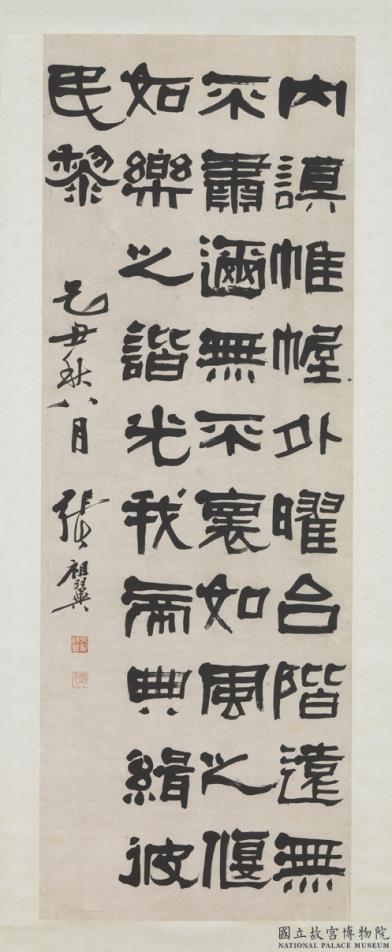 內謨帷幄外曜台階遠無
不肅邇無不褱如風之偃
如樂之諧光我帝典緝彼
民黎
己丑秋八月 張祖翼
國立故宮博物院
NATIONAL PALACE MUSEUM